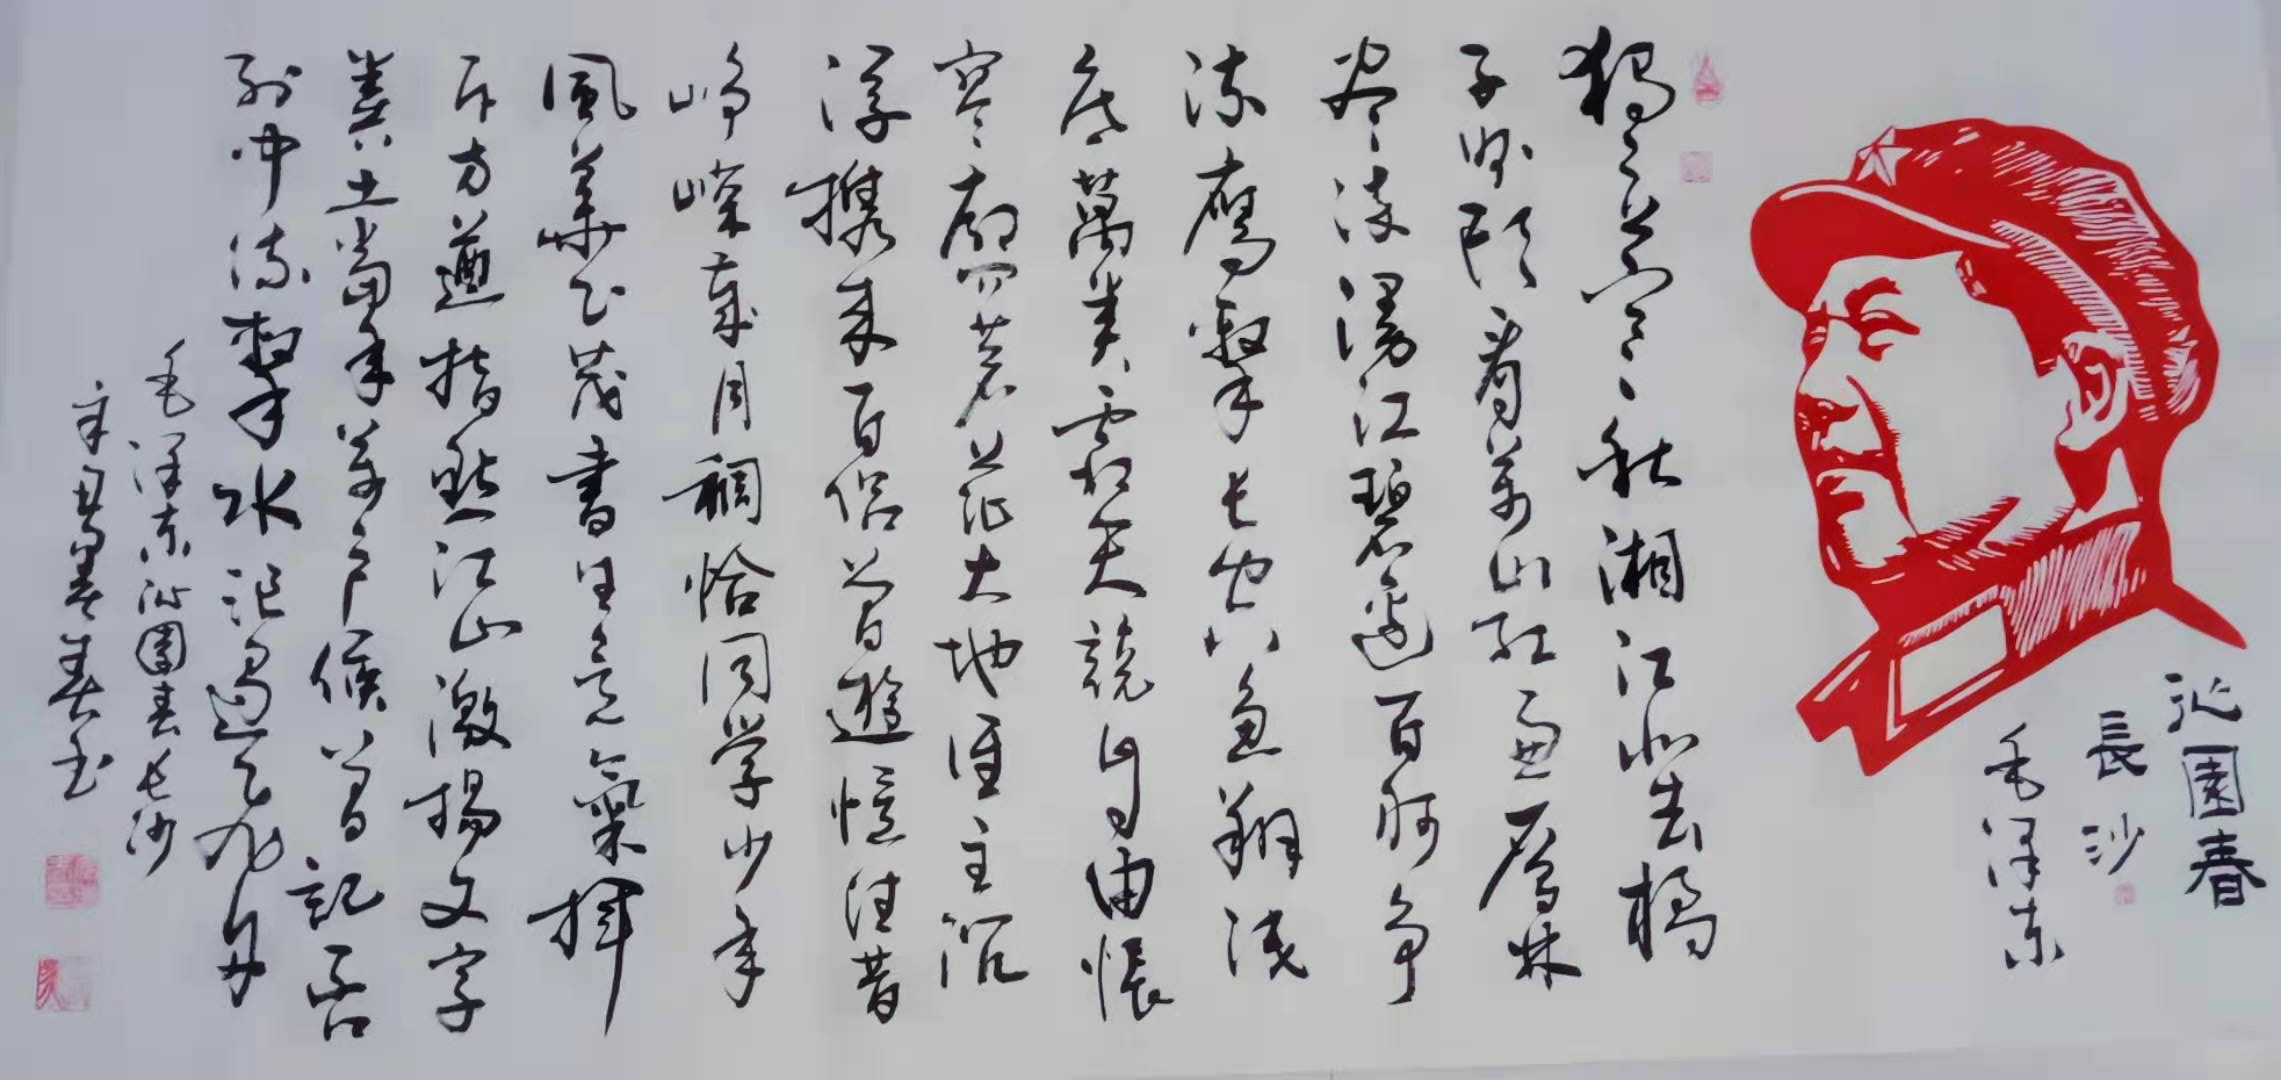 沁園春
長沙
毛泽东
獨立寒秋湘江北去橘
子洲頭看万山紅遍層林
尽染漫江碧透百舸争
流鷹擊长空魚翔浅
底萬类霜天競自由悵
寥廓问苍茫大地谁主沉
浮攜来百侣曾遊憶往昔
峥嵘歲月稠恰同学少年
風華正茂書生意氣揮
斥方遒指點江山激揚文字
糞土當年万户侯曾記否
到中流擊水浪遏飞舟
毛泽东沁園春长沙
辛丑春书